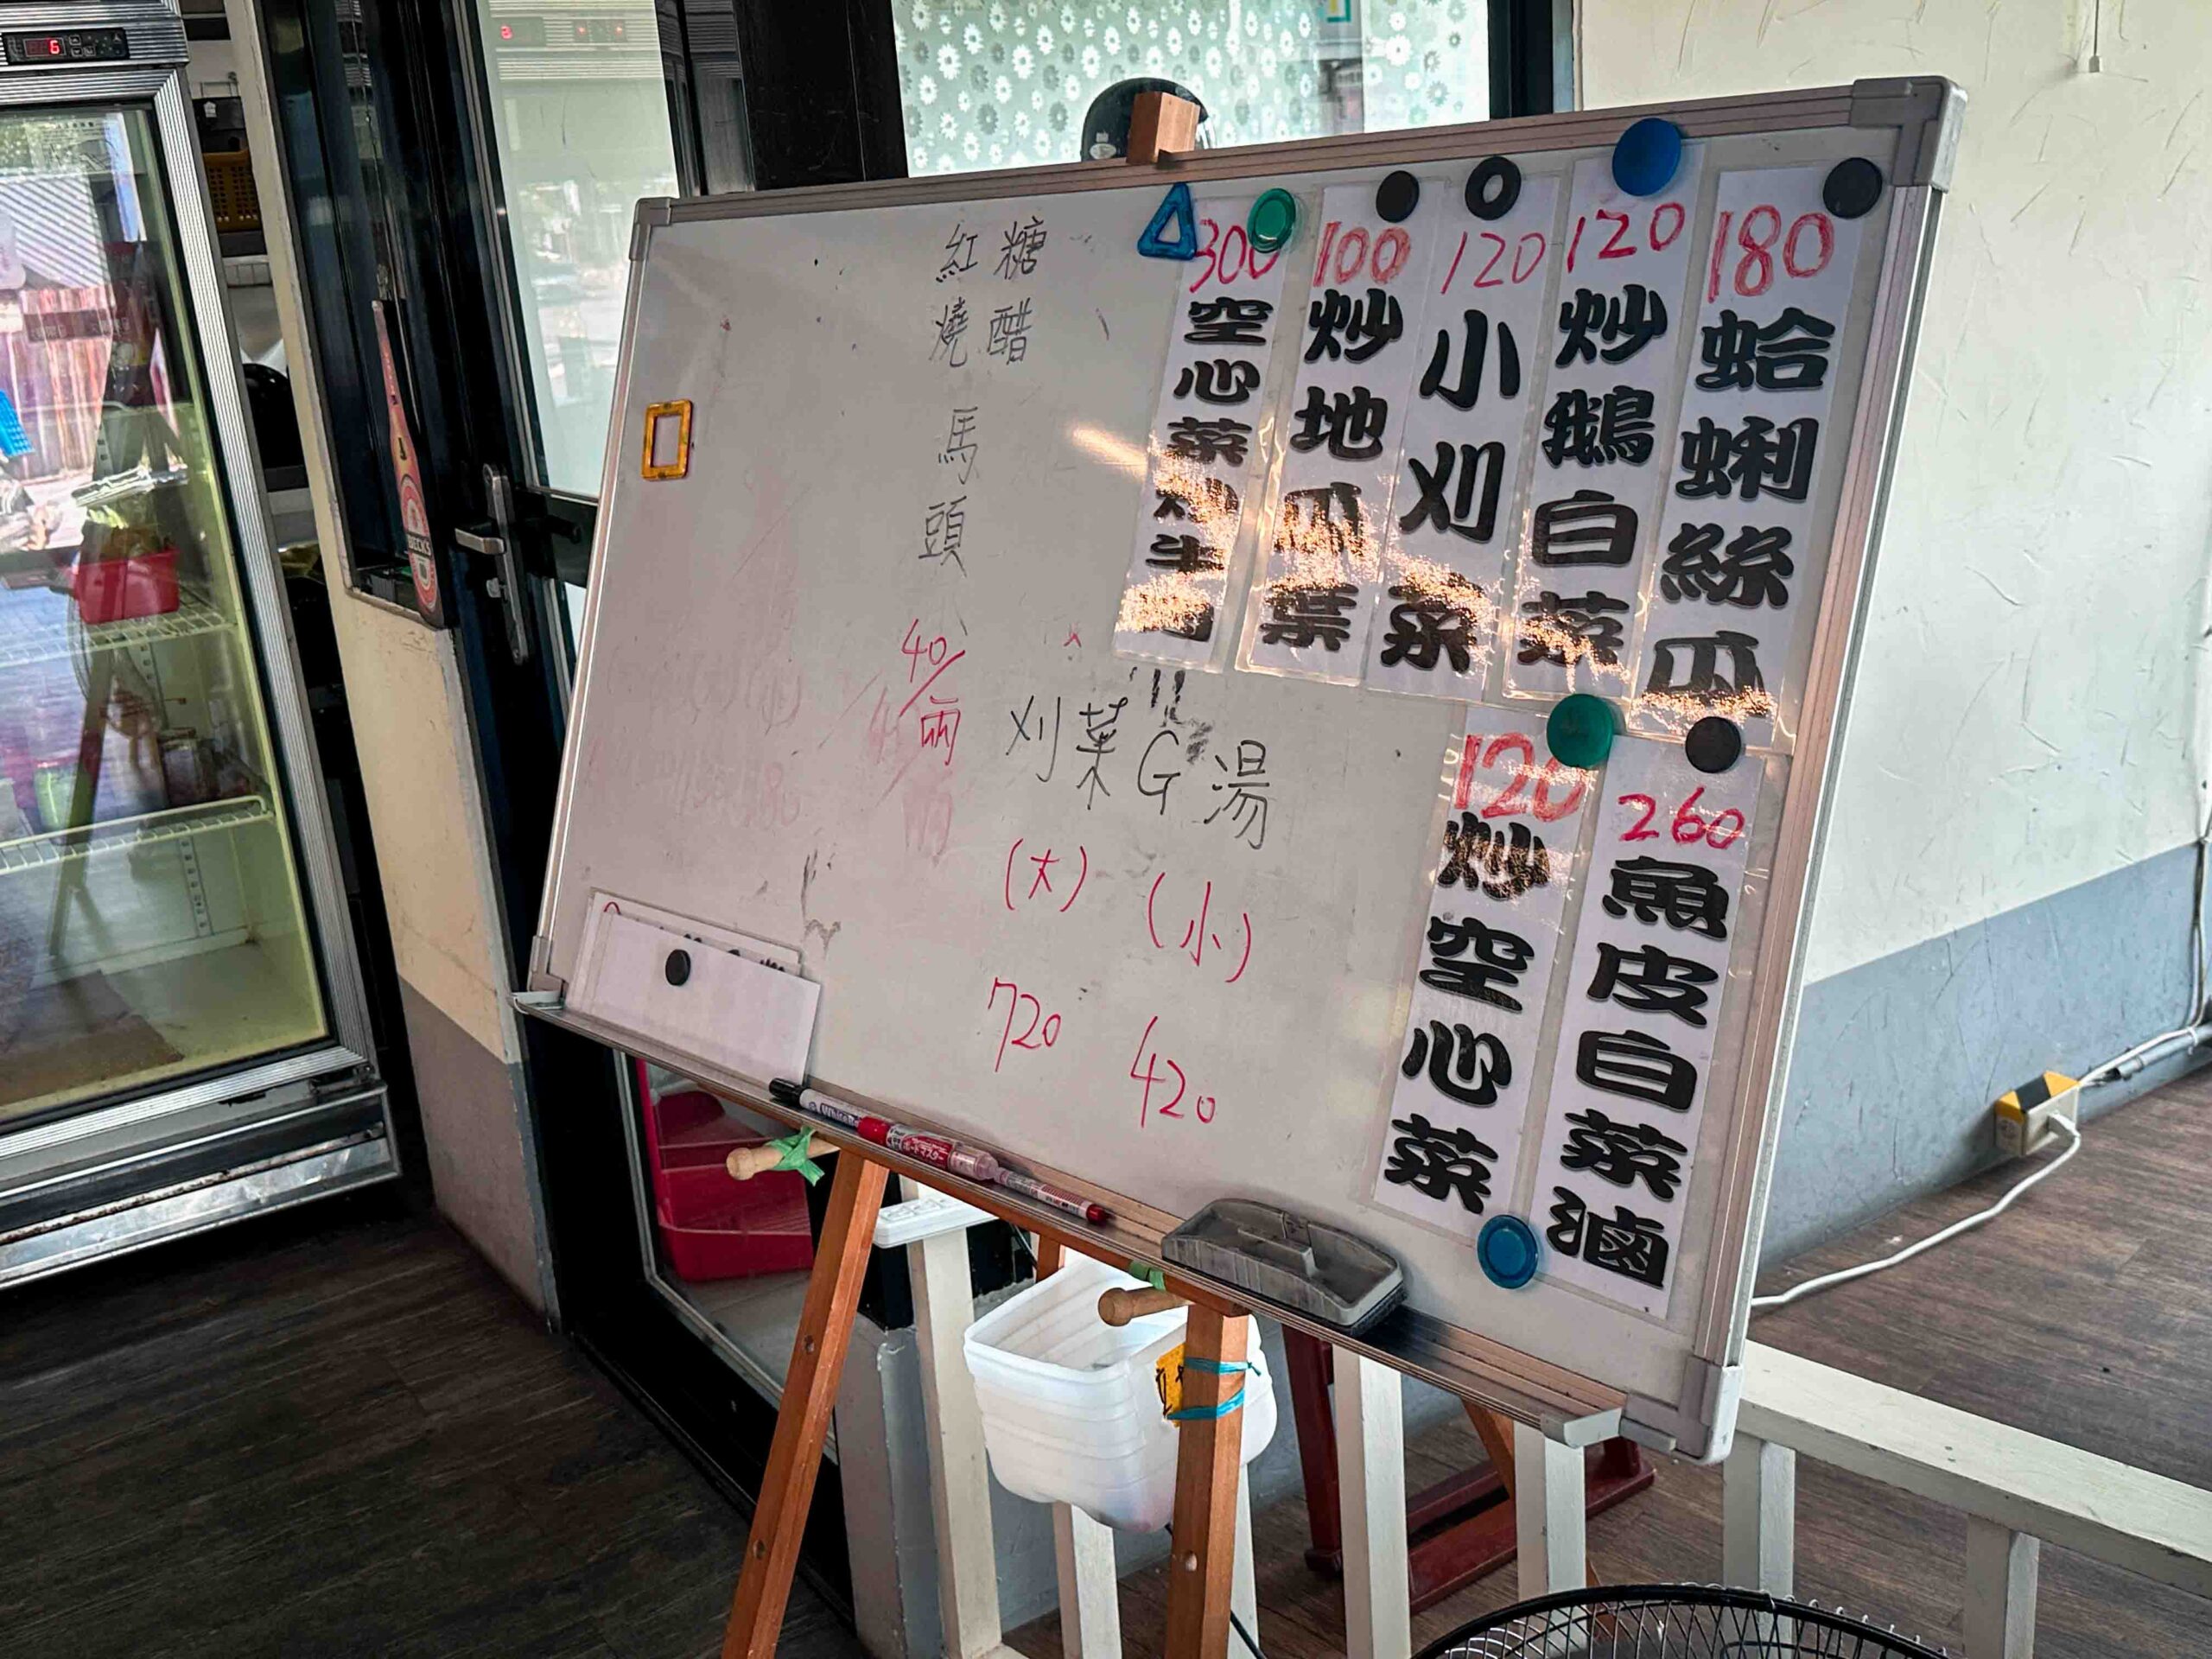 180
蛤蜊絲瓜
120
炒鵝白菜
120
小刈菜
100
炒地瓜葉
300
空心菜炒牛肉
糖醋
紅燒
馬頭
40/兩
260
魚皮白菜滷
120
炒空心菜
刈菜G湯
(大) (小)
720 420
6